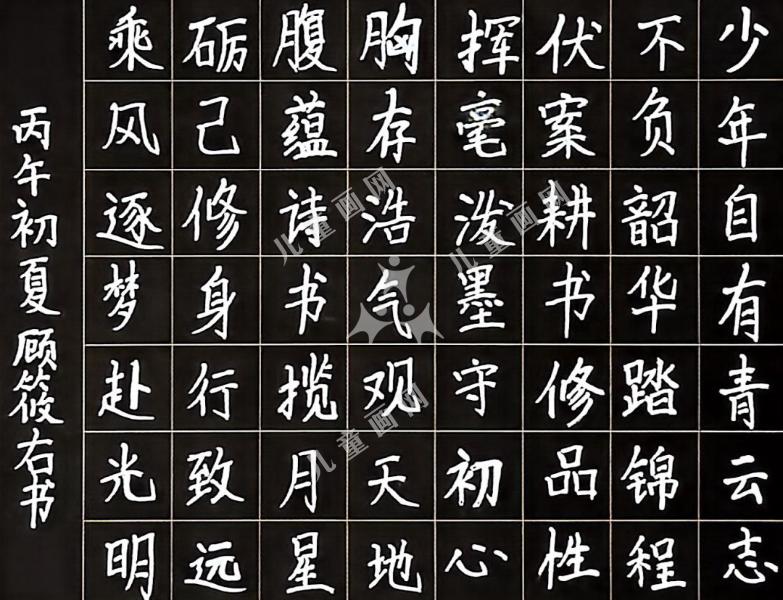 少年自有青云志
不负韶华踏锦程
伏案耕书修品性
挥毫泼墨守初心
胸存浩气观天地
腹蕴诗书揽月星
砺己修身行致远
乘风逐梦赴光明
丙午初夏顾筱右书
儿童画网
儿童画网
儿童画网